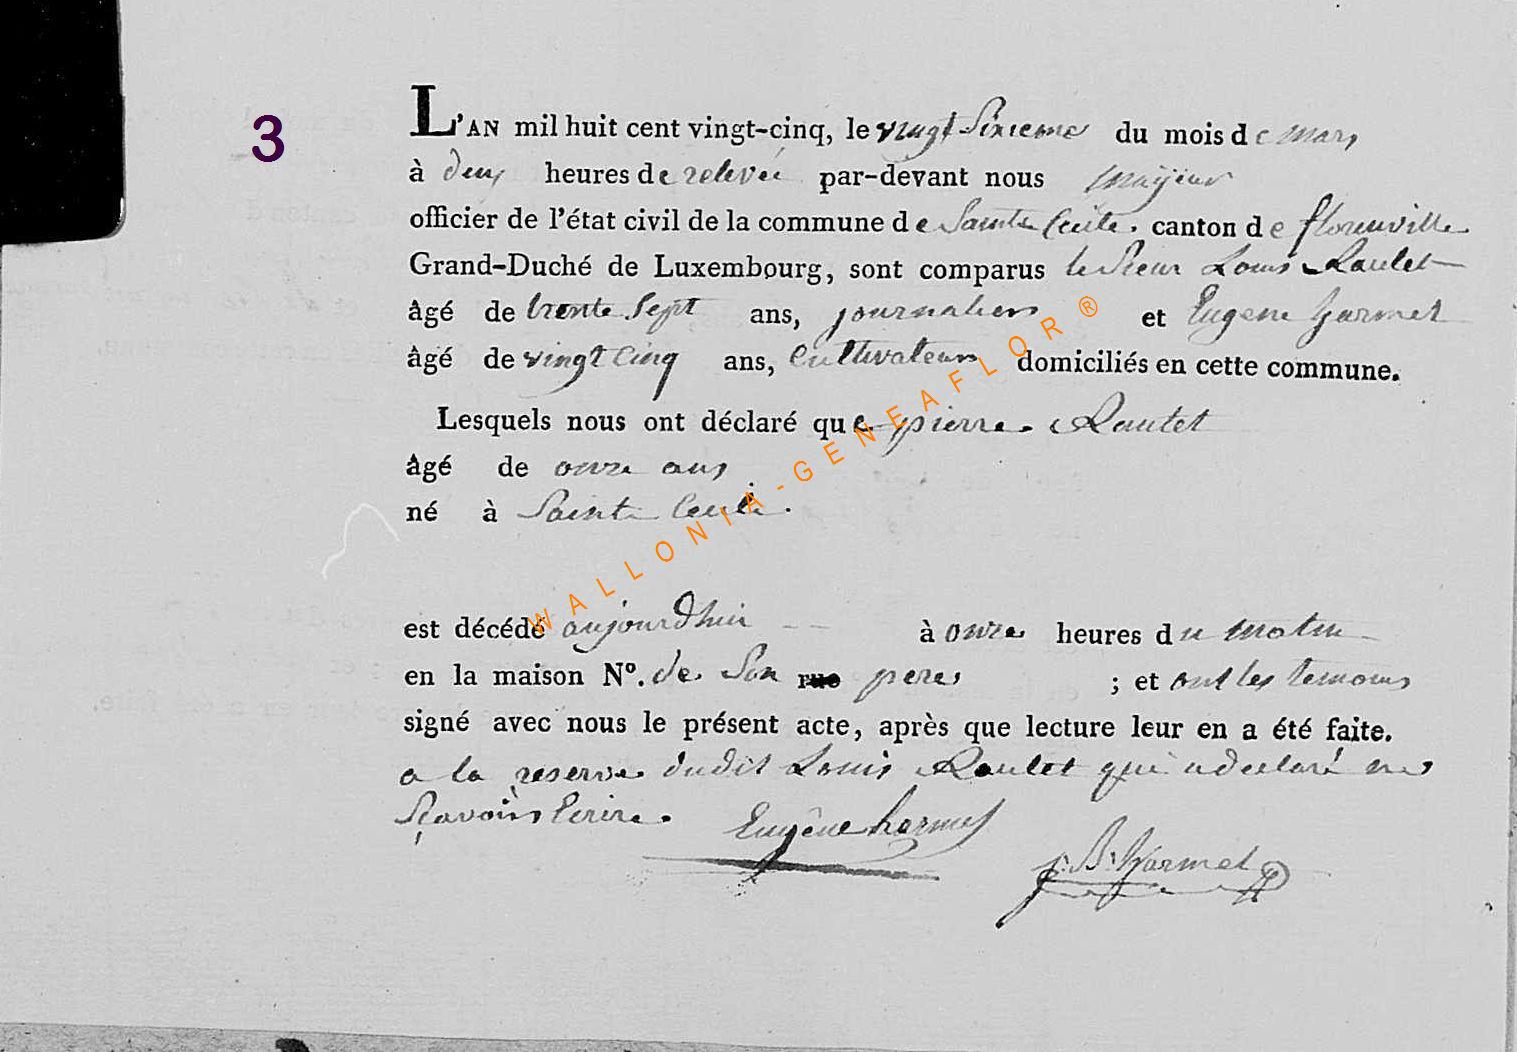 3
L'AN mil huit cent vingt-cinq, le vingt Sixieme du mois de mars
à deux heures de relevée par-devant nous mayeur
officier de l'état civil de la commune de Sainte Cecile. canton de florenville
Grand-Duché de Luxembourg, sont comparus le Sieur Louis Raulet
âgé de trente Sept ans, journalier et Eugene harmel
âgé de vingt Cinq ans, Cultivateur domiciliés en cette commune.
Lesquels nous ont déclaré que pierre Raulet
âgé de onze ans
né à Sainte Cecile.
est décédé aujourdhui à onze heures du matin
en la maison No. de Son rue pere ; et ont les temoins
signé avec nous le présent acte, après que lecture leur en a été faite.
a la reserve dudit Louis Raulet qui a declaré ne
Sçavoir Ecrire.
Eugêne harmel
j. B. harmel
WALLONIA-GENEAFLOR ®